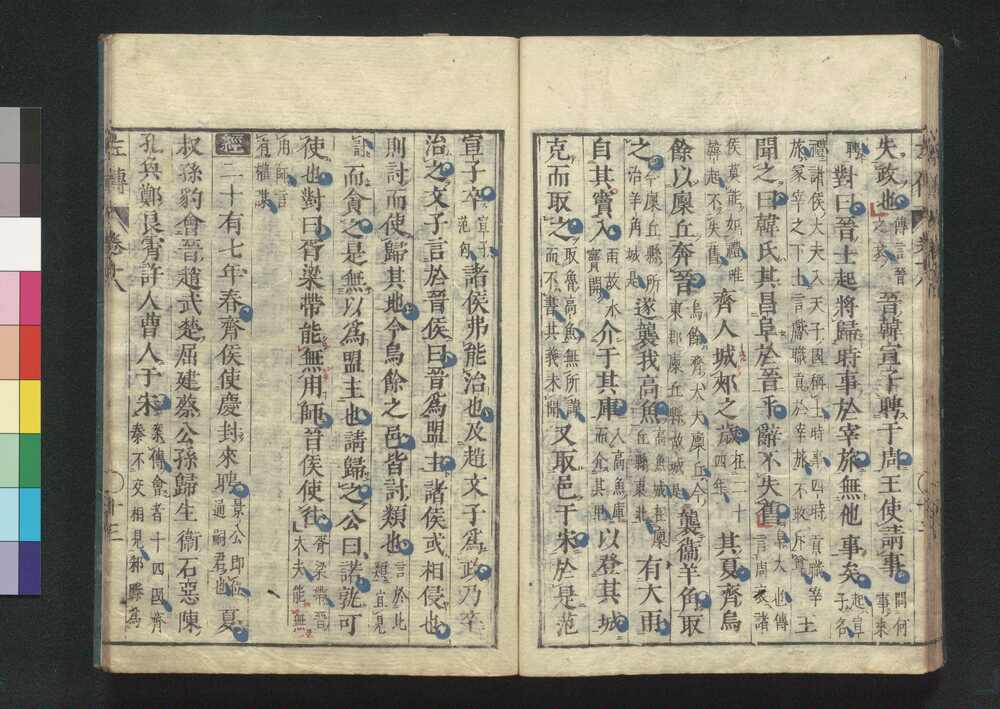 失政也傳言晉之衰晉韓宣子聘于周王使請事問何事來
聘對曰晉士起將歸時事於宰旅無他事矣起宣子名
禮諸侯大夫入天子國稱士時事四時貢職宰旅冢宰之下士言獻職貢於宰旅不敢斥尊王
聞之曰韓氏其昌阜於晉乎辭不失舊阜大也傳言周衰諸
侯莫能如禮唯韓起不失舊齊人城郟之歲在二十四年其夏齊烏
餘以廩丘奔晉烏餘齊大夫廩丘今東郡廩丘縣故城是襲衞羊角取
之今廩丘縣所治羊角城是遂襲我高魚高魚城在廩丘縣東北有大雨
自其竇入雨故水竇開介于其庫入高魚庫而介其甲以登其城
克而取之取魯高魚無所諱而不書其義未聞又取邑于宋於是范
宣子卒宣子范匄諸侯弗能治也及趙文子爲政乃卒
治之文子言於晉侯曰晉爲盟主諸侯或相侵也
則討而使歸其地今烏餘之邑皆討類也言於比類宜見
討而貪之是無以爲盟主也請歸之公曰諾孰可
使也對曰胥梁帶能無用師晉侯使往胥梁帶晉大夫能無
用師言有權謀
經二十有七年春齊侯使慶封來聘景公即位通嗣君也夏
叔孫豹會晉趙武楚屈建蔡公孫歸生衞石惡陳
孔奐鄭良霄許人曹人于宋案傳會者十四國齊秦不交相見邾滕爲
左傳 卷十八 十三